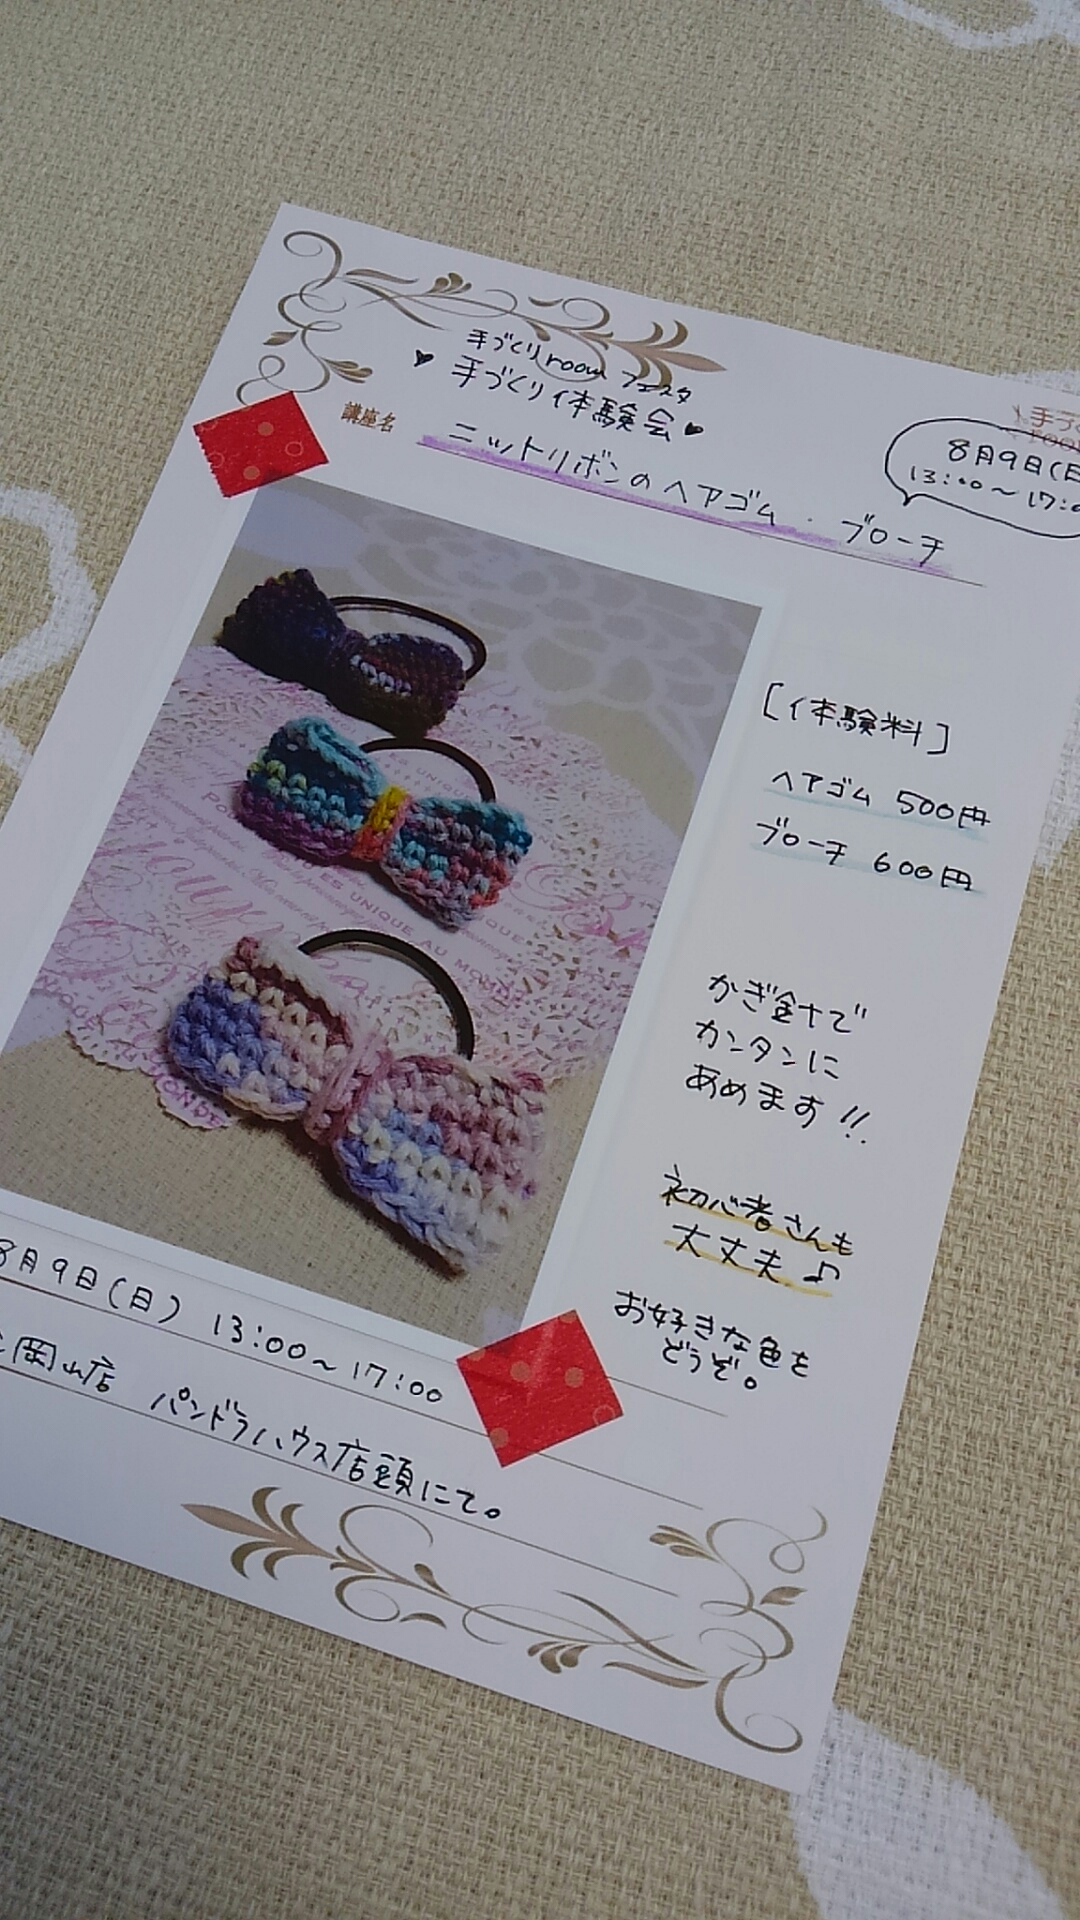 手づくりroomフェスタ
♥ 手づくり体験会 ♥
講座名
ニットリボンのヘアゴム・ブローチ
8月9日(日
13:00〜17:0
[体験料]
ヘアゴム 500円
ブローチ 600円
かぎ針で
カンタンに
あめます!!
初心者さんも
大丈夫♪
お好きな色を
どうぞ。
8月9日(日) 13:00〜17:00
岡山店 パンドラハウス店頭にて。